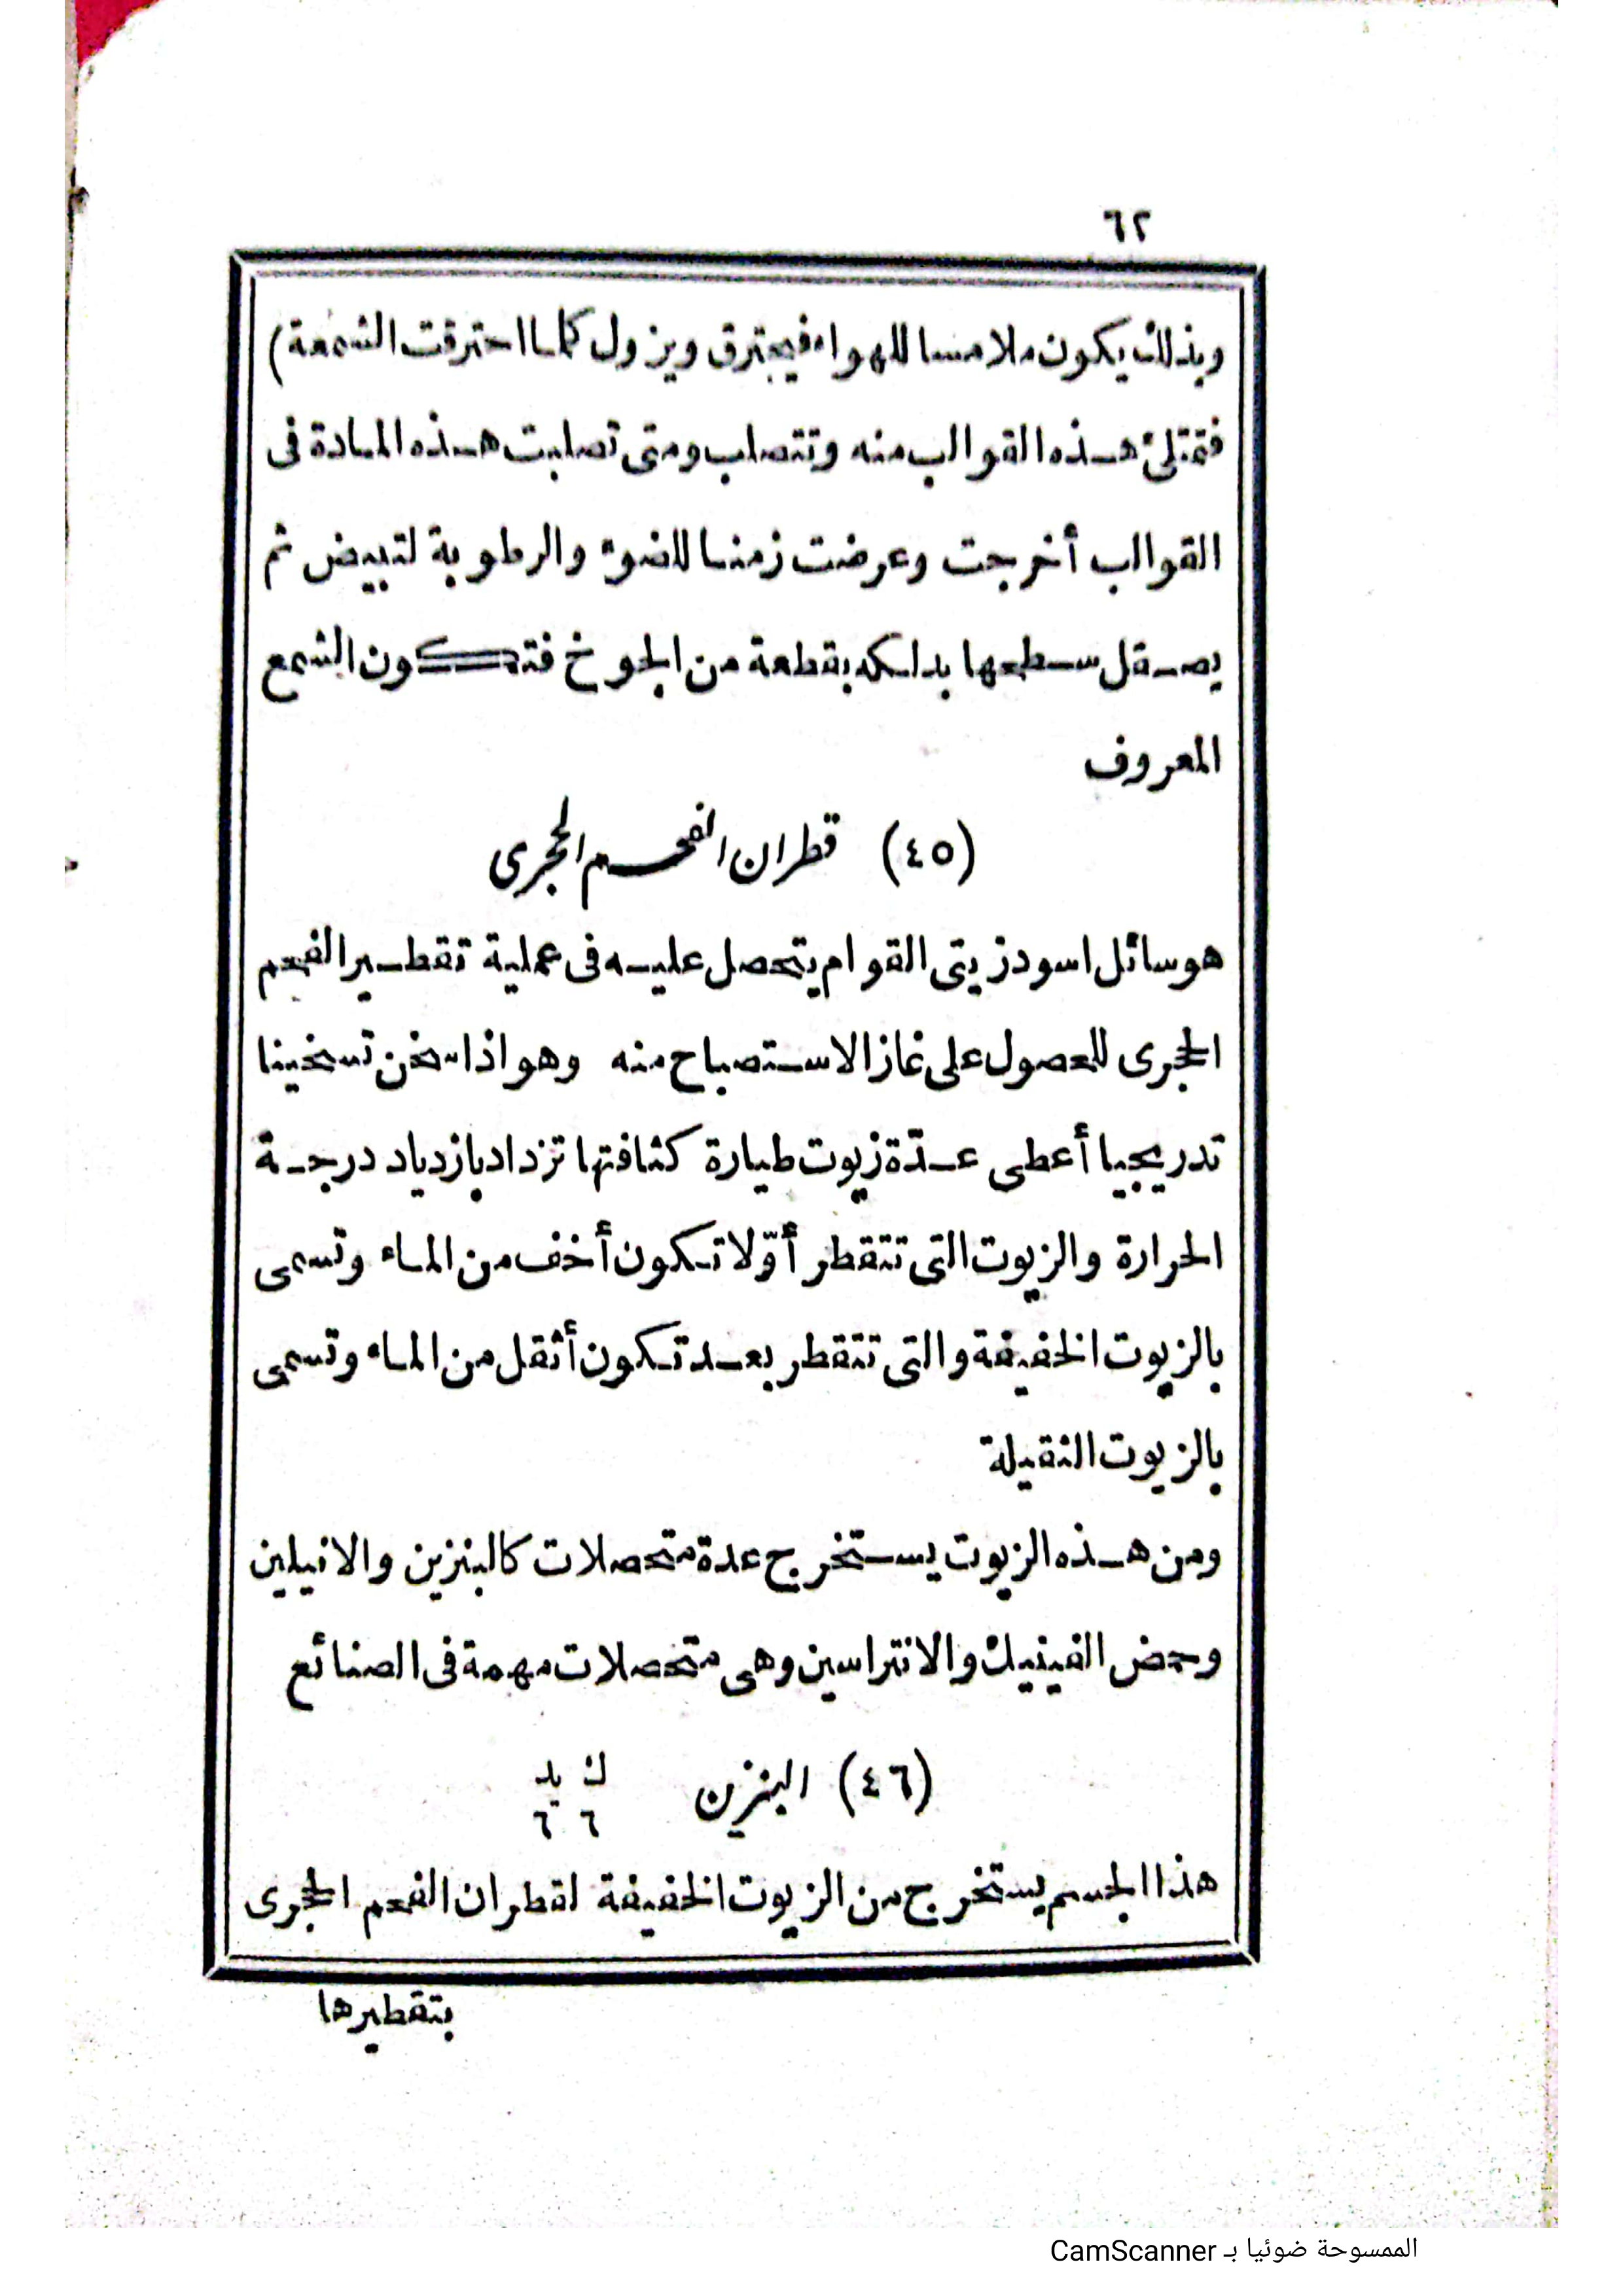 ٦٢
وبذلك يكون ملامسا للهواء فيحترق ويزول كلما احترقت الشمعة)
فتمتلئ هذه القوالب منه وتتصلب ومتى تصلبت هذه المادة فى
القوالب أخرجت وعرضت زمنا للضوء والرطوبة لتبيض ثم
يصقل سطحها بدلكه بقطعة من الجوخ فتكون الشمع
المعروف
(٤٥) قطران الفحم الحجرى
هو سائل اسود زيتى القوام يتحصل عليه فى عملية تقطير الفحم
الحجرى للحصول على غاز الاستصباح منه وهو اذا سخن تسخينا
تدريجيا أعطى عدّة زيوت طيارة كثافتها تزداد بازدياد درجة
الحرارة والزيوت التى تتقطر أوّلا تكون أخف من الماء وتسمى
بالزيوت الخفيفة والتى تتقطر بعد تكون أثقل من الماء وتسمى
بالزيوت الثقيلة
ومن هذه الزيوت يستخرج عدة متحصلات كالبنزين والانيلين
وحمض الفينيك والانتراسين وهى متحصلات مهمة فى الصنائع
(٤٦) البنزين ك يد
٦ ٦
هذا الجسم يستخرج من الزيوت الخفيفة لقطران الفحم الحجرى
بتقطيرها
الممسوحة ضوئيا بـ CamScanner